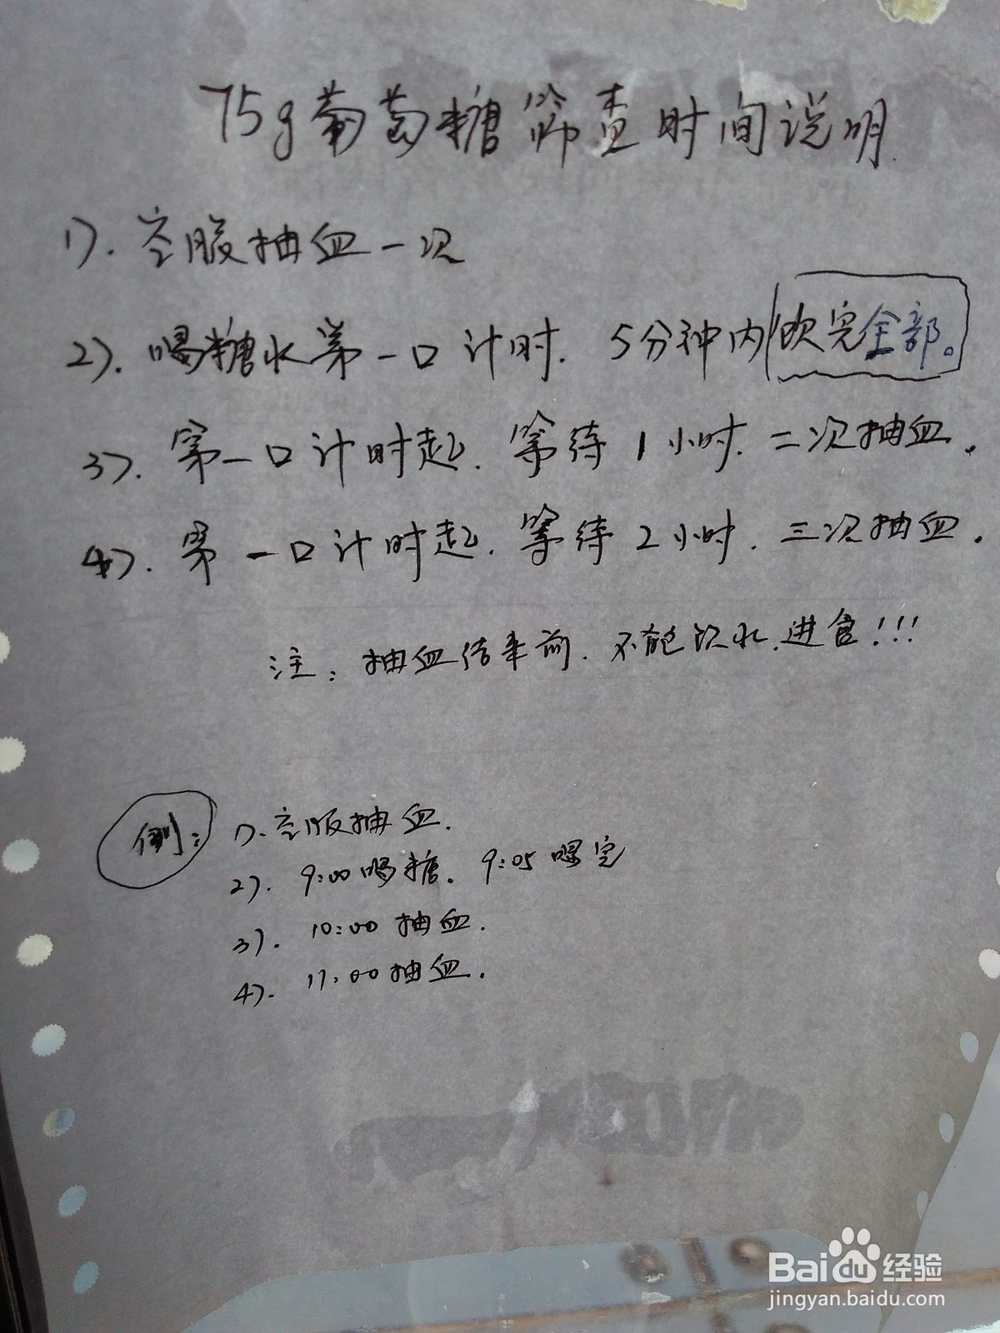 75g葡萄糖筛查时间说明.
1). 空腹抽血一次
2). 喝糖水第一口计时. 5分钟内饮完全部。
3). 第一口计时起. 等待1小时. 二次抽血.
4). 第一口计时起. 等待2小时. 三次抽血.
注: 抽血结束前. 不能饮水.进食!!!
例: 1). 空腹抽血.
2). 9:00喝糖. 9:05喝完
3). 10:00 抽血.
4). 11:00抽血.
Baidu经验
jingyan.baidu.com